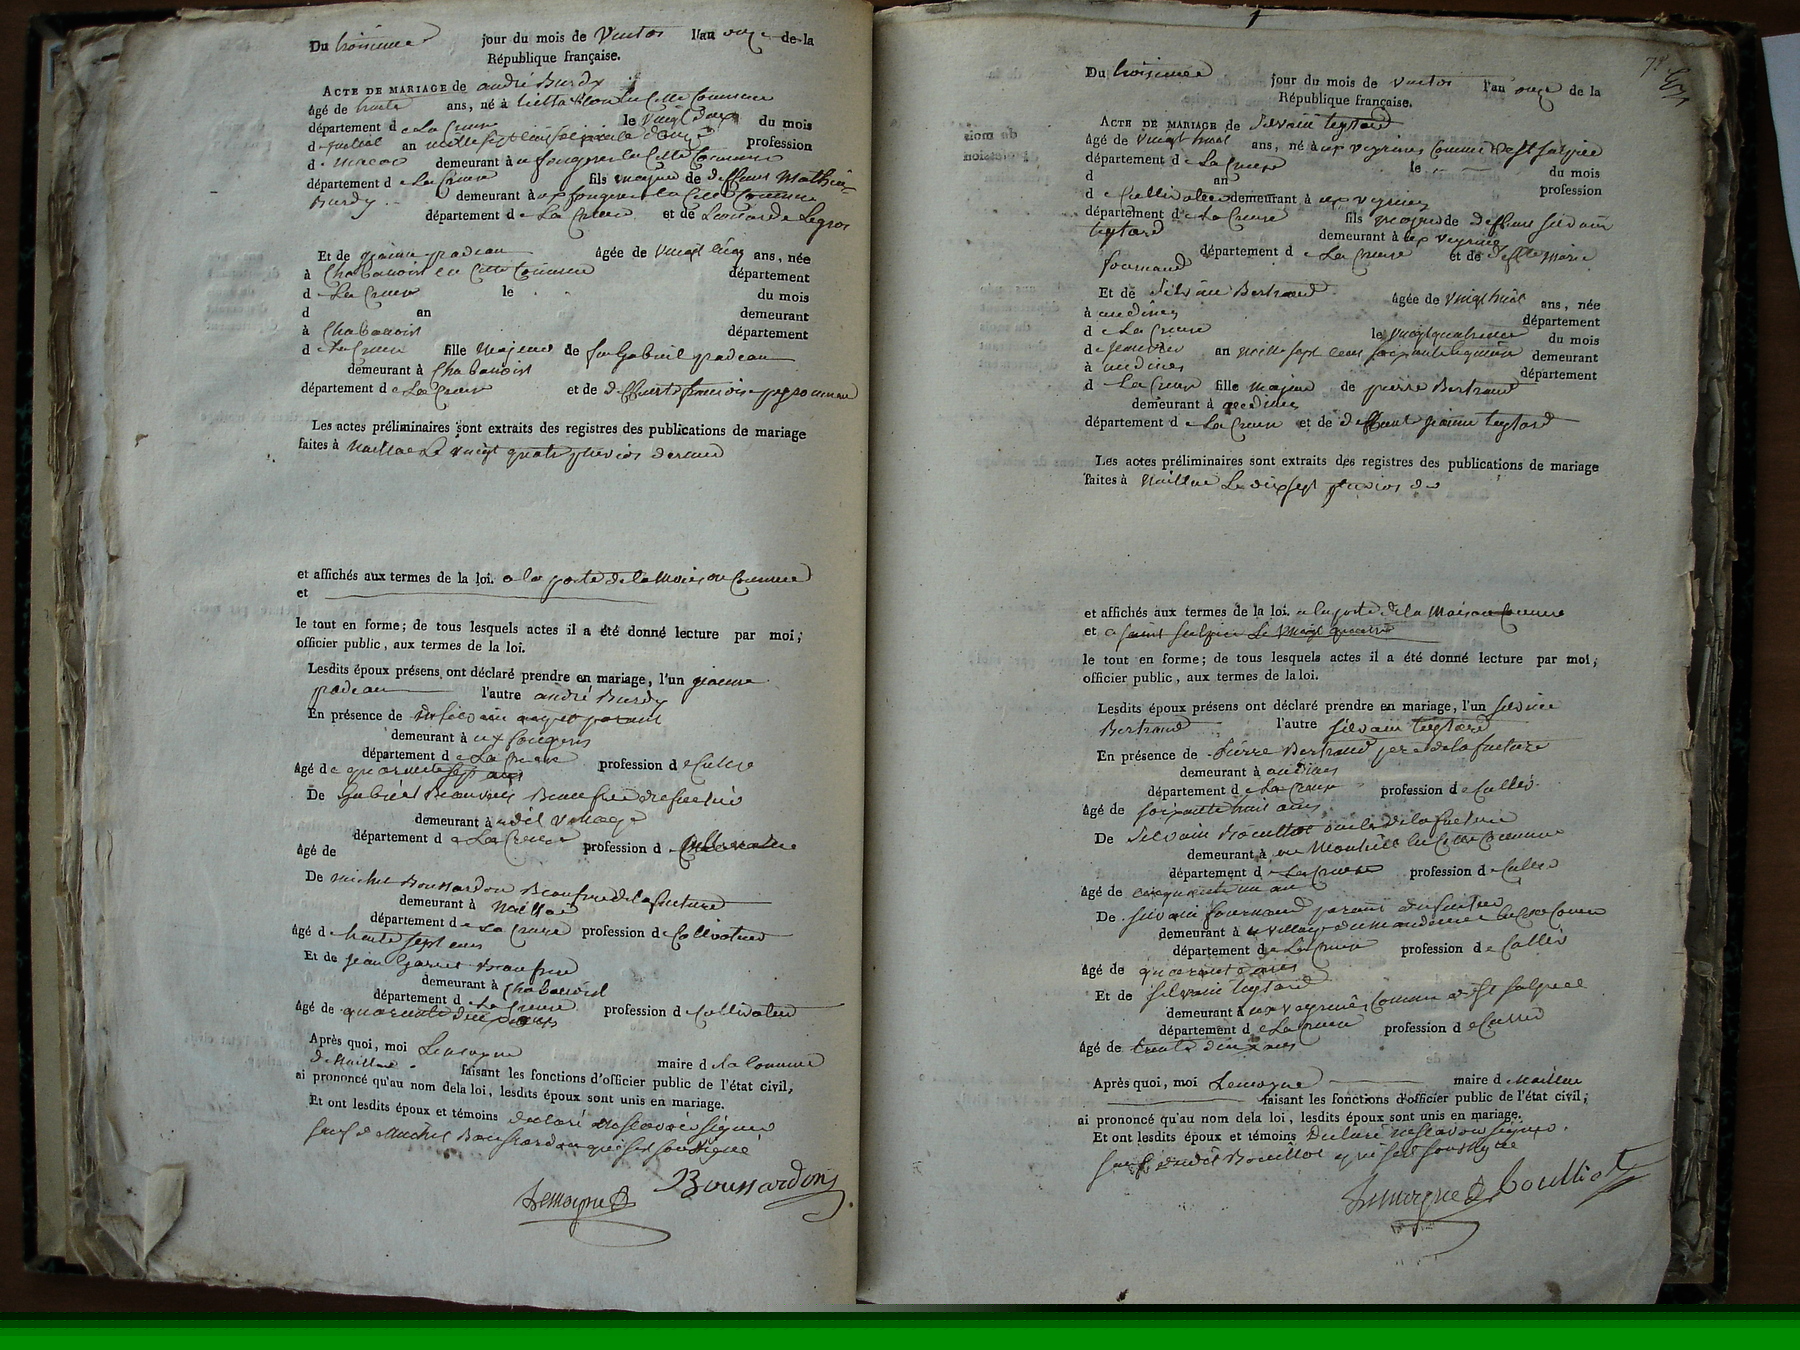 Du troisieme jour du mois de Ventos l'an onze de la
République française.
ACTE DE MARIAGE de andré Burdy
âgé de trente ans, né à cette Commune
département d e La Creuse le vingt deux du mois
d e juillet an mille sept cens soixante douze profession
d e Macon demeurant à la Cette Commune
département d e La Creuse fils majeur de deffunt Mathieu
Burdy demeurant à en Cette Commune
département d e La Creuse et de Leonarde Legros
Et de jeanne pradeau âgée de vingt cinq ans, née
à Chabanois en Cette Commune département
d e La Creuse le du mois
d an demeurant
à Chabanois département
d e La Creuse fille Majeure de feu Gabriel pradeau
demeurant à Chabanois
département d e La Creuse et de deffunte francoise
Les actes préliminaires sont extraits des registres des publications de mariage
faites à Naillac Le vingt quatre pluvios dernier
et affichés aux termes de la loi. a la porte de la Maison Commune
et
le tout en forme; de tous lesquels actes il a été donné lecture par moi;
officier public, aux termes de la loi.
Lesdits époux présens ont déclaré prendre en mariage, l'un jeanne
pradeau l'autre andré Burdy
En présence de parent
demeurant à
département d e La Creuse profession d e Cult
Agé de quarante sept ans
De Gabriel Beaufrere
demeurant à udit village
département d e La Creuse profession d e Cultivateur
Agé de
De michel Boussardon Beaufrere de la future
demeurant à Naillac
département d e La Creuse profession d e Cultivateur
Agé d e trente sept ans
Et de jean Beaufrere
demeurant à Chabanois
département d e La Creuse profession d e Cultivateur
Agé de quarante deux ans
Après quoi, moi Lemoyne maire d e la Commune
de Naillac faisant les fonctions d'officier public de l'état civil,
ai prononcé qu'au nom dela loi, lesdits époux sont unis en mariage.
Et ont lesdits époux et témoins declaré ne scavoir signer
sauf Michel Boussardon qui sest soussigné
Lemoyne Boussardon
Du troisieme jour du mois de ventos l'an onze de la
République française.
ACTE DE MARIAGE de Silvain teytard
âgé de vingt huit ans, né à ux veyrines Commune de st sulpice
département d e La Creuse le du mois
d an profession
d e Cultivateur demeurant à ux veyrines
département d e La Creuse fils majeur de deffunt silvain
teytard demeurant à ux veyrines
département d e La Creuse et de deffte Marie
fournaud
Et de Silvine Bertrand âgée de vingt huit ans, née
à département
d e La Creuse le vingt quatrieme du mois
d e janvier an mille sept cens soixante quinze demeurant
à département
d e La Creuse fille majeure de pierre Bertrand
demeurant à
département d e La Creuse et de deffunte jeanne teytard
Les actes préliminaires sont extraits des registres des publications de mariage
faites à Naillac Le dix sept pluvios
et affichés aux termes de la loi. a la porte de la Maison Commune
et a saint sulpice Le vingt quatre
le tout en forme; de tous lesquels actes il a été donné lecture par moi;
officier public, aux termes de la loi.
Lesdits époux présens ont déclaré prendre en mariage, l'un silvine
Bertrand l'autre silvain teytard
En présence de Pierre Bertrand pere de la future
demeurant à
département d e La Creuse profession d e Cult
Agé de soixante huit ans
De Silvain Bouilliot oncle de la future
demeurant à en Cette Commune
département d e La Creuse profession d e Cult
Agé de cinquante un an
De silvain fournaud parent du futur
demeurant à u village
département d e La Creuse profession d e Cult
Agé de quarante ans
Et de silvain teytard
demeurant à ux veyrines Commune de st sulpice
département d e La Creuse profession d e Cult
Agé de trente deux ans
Après quoi, moi Lemoyne maire d e Naillac
faisant les fonctions d'officier public de l'état civil;
ai prononcé qu'au nom dela loi, lesdits époux sont unis en mariage.
Et ont lesdits époux et témoins declaré ne scavoir signer
sauf ledit Bouilliot qui sest soussigné
Lemoyne Bouilliot